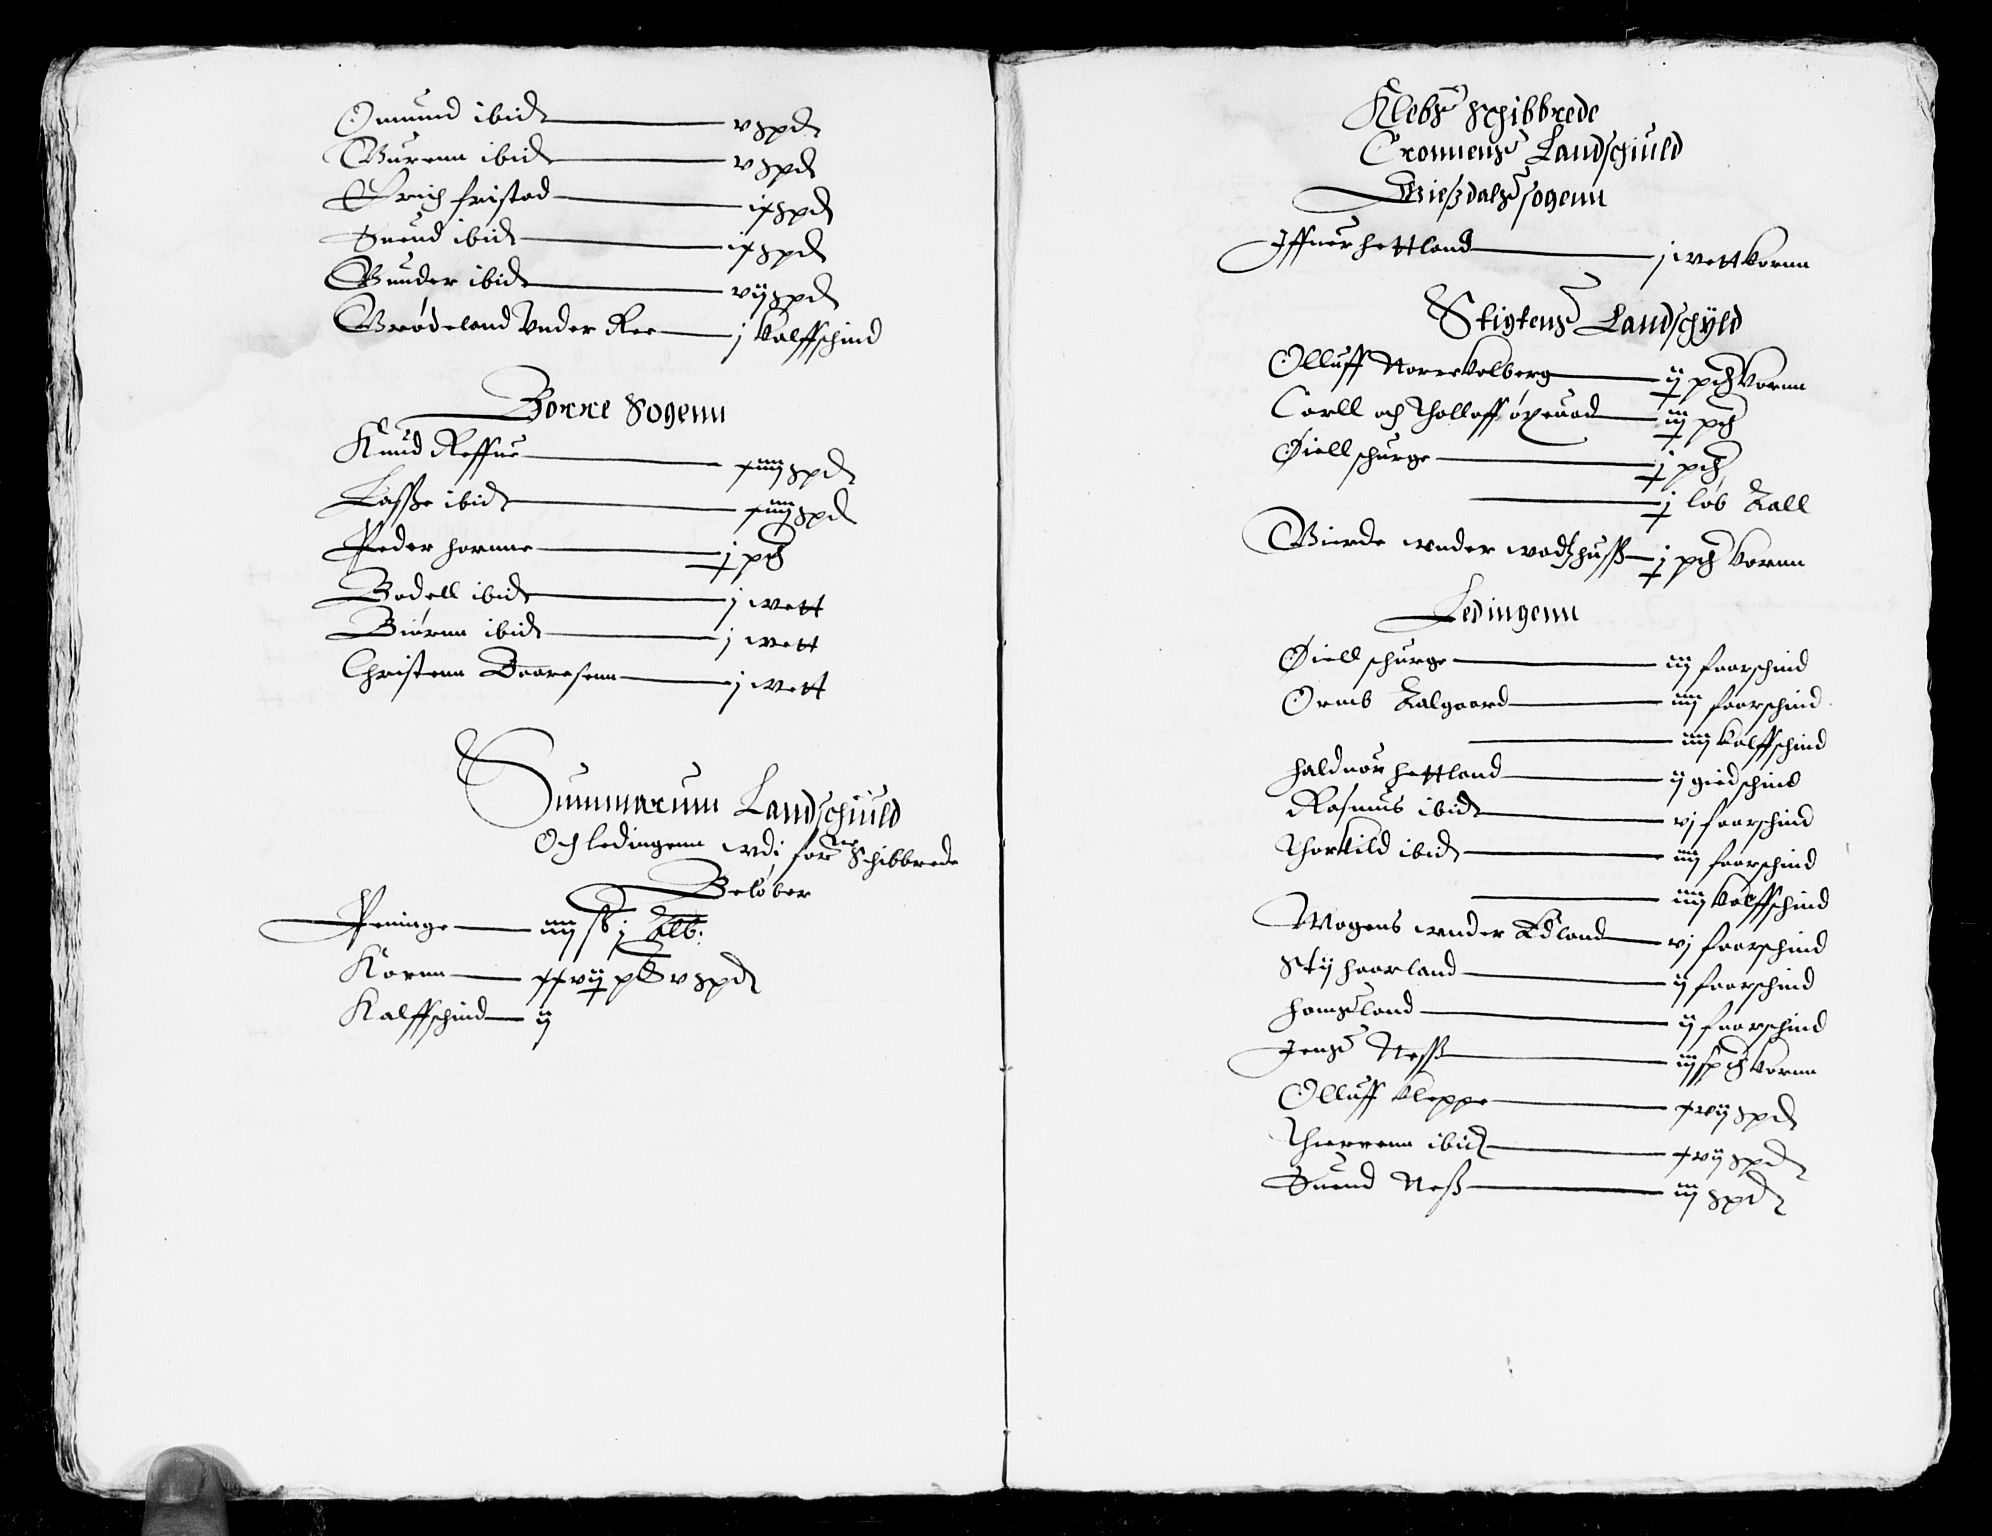 Omund ibid v spd
Gurenn ibid v spd
Erich fristad ix spd
Suend ibid ix spd
Gunder ibid vij spd
Brødeland vnder Ree j kalffschind
Borre Sogenn
Knud Reffue xiiij spd
Lasße ibid xiiij spd
Peder hornne j pd
Bodell ibid j wett
Biørnn ibid j wett
Christenn Baaresenn j wett
Summarum Landschiuld
Och ledingenn vdi for ne Schibbrede
Beløber
Peninge iiij ß j alb:
Kornn xxvij pd v spd
Kalffschind ij
Klebs Schibbrede
Cronnens Landschiuld
Gießdals sogenn
Iffuer hettland j wett kornn
Stigtens Landschyld
Olluff Norre kolberg ij pd kornn
Carll och Tholloff øxeuad iij pd
Øiell schurge j pd
j løb Tall
Gierde wnder wodzhuss j pd kornn
Ledingenn
Øiell schurge iij faarschind
Ormb Aalgaard iiij faarschind
iiij kalffschind
halduor hettland ij giedschind
Rasmus ibid vj faarschind
Thorkild ibid iiij faarschind
iiij kalffschind
Mogens wnder Edland vj faarschind
Stij haarland ij faarschind
hamsland ij faarschind
Jens Ness iij spd kornn
Olluff kleppe xvij spd
Thierrenn ibid xvij spd
Suend Neß iij spd